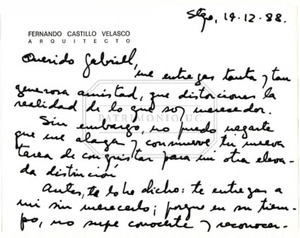 Stgo, 14-12-88.
FERNANDO CASTILLO VELASCO
ARQUITECTO
Querido Gabriel,
me entregas tanta y tan
generosa amistad, que distorsiona la
realidad de lo que soy merecedor.
Sin embargo, no puedo negarte
que me alaga y conmueve tu nueva
tarea de conquistar para mi otra eleva-
da distinción
Antes, te lo he dicho: te entregas a
mi sin merecerlo; porque en su tiem-
po, no supe conocerte y reconocer-
PATRIMONIO UC